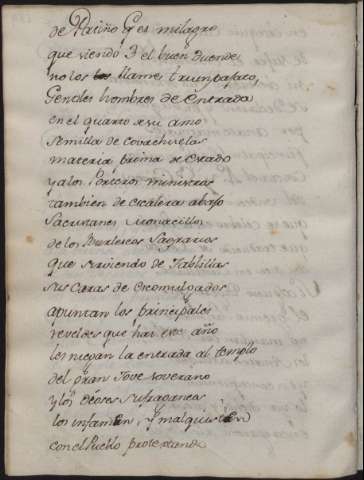 de Patiño q.e es milagro
que viendo q.e el buen Duende
no los llames trunpafato,
Gentiles hombres de entrada
en el quarto de su amo
Semilla de covachuelas
materia prima de
y a los Porteros ministros
tambien de escalera abajo
Sacristanes Monacillos
de los Burlescos Sagrarios
que sirviendo de tablillas
sus caras de excomulgados
apuntan los principales
reveldes que hai este año
les niegan la entrada al templo
del gran Jove soverano
y los Dioses sufraganeos
los infamen, y malquisten
con el Pueblo